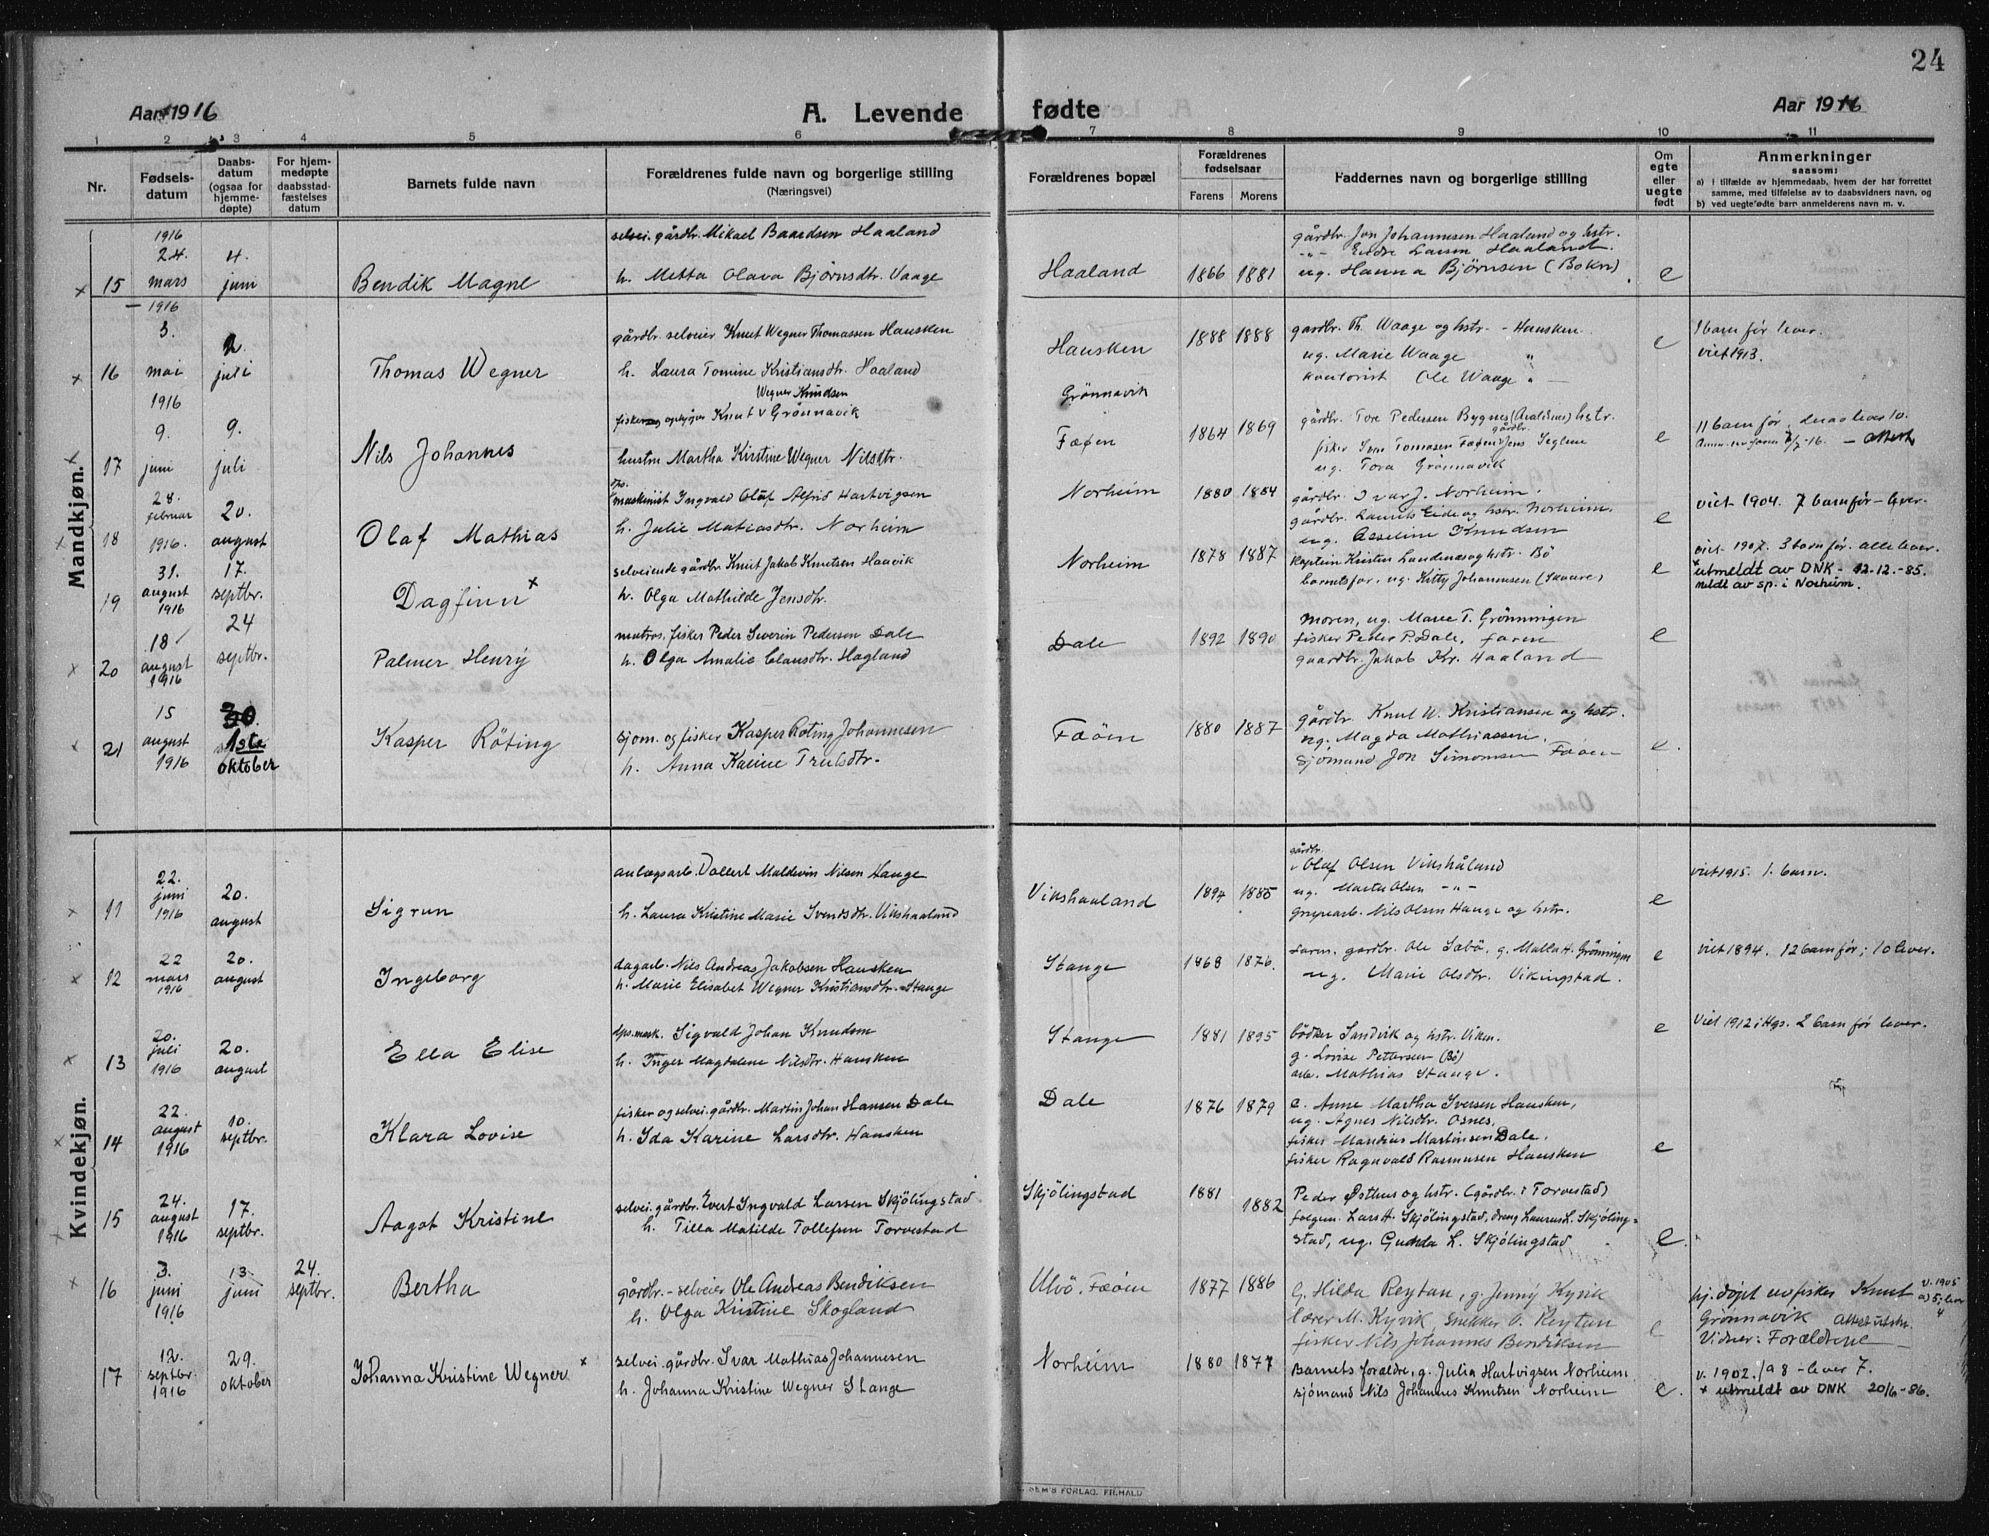 24
Aar 1916
A. Levende
fødte
Aar 1916
1 2 3 4 5 6 7 8 9 10 11
Nr.
Fødsels-
datum
Daabs-
datum
(ogsaa for
hjemme-
døpte)
For hjem-
medøpte
daabsstad-
fæstelses
datum
Barnets fulde navn
Forældrenes fulde navn og borgerlige stilling
(Næringsvei)
Forældrenes bopæl
Forældrenes
fødselsaar
Farens Morens
Faddernes navn og borgerlige stilling
Om
egte
eller
uegte
født
Anmerkninger
saasom:
a) i tilfælde av hjemmedaab, hvem der har forrettet
samme, med tilføielse av to daabsvidners navn, og
b) ved uegtefødte barn anmelderens navn m. v.
Mandkjøn.
1916
24. mars
4. juni
15
Bendik Magne
selvei. gårdbr. Mikael Baardsen Haaland
h. Metta Olava Bjørnsdtr. Vaage
Haaland
1866 1881
gårdbr. Jon Johannesen Haaland og hstr.
-"- Endre Larsen Haaland.
ug. Hanna Bjørnsen (Bokn)
e
1916
3. mai
2. juli
16
Thomas Wegner
gårdbr. selveier Knut Wegner Thomassen Hausken
h. Laura Tomine Kristiansdtr. Haaland
Hausken
1888 1888
gardbr. Th. Waage og hstr. - Hausken.
ug. Marie Waage "
kontorist Ole Waage "
e
1 barn før lever.
viet 1913.
1916
9. juni
9. juli
17
Nils Johannes
Wegner Knudsen
fisker og opsyger Knut v Grönnavik
hustru Martha Kirstine Wegner Nilsdtr.
Grönnavik
Fæøen
1864 1869
gårdbr. Tore Pedersen Bygnes (Avaldsnes) hstr.
gårdbr.
fisker Sven Tomasen Fæøen Jens Seglem
ug. Tora Grönnavik
e
11 barn før, deraf lever 10.
- attest
28. februar 1916.
20. august
18
Olaf Mathias
dps.
maskinist Ingvald Oluf Alfrid Hartvigsen
h. Julie Matiasdtr. Norheim
Norheim
1880 1884
gårdbr. Ivar J. Norheim.
gårdbr. Laurits Eide og hstr. Norheim.
ug. Asseline Knudsen
e
viet 1904. 7 barn før - lever.
31. august 1916
17. septbr.
19
Dagfinn x
selveiende gårdbr. Knut Jakob Knutsen Haavik
h. Olga Mathilde Jensdtr.
Norheim
1878 1887
kaptein Kristen Landenes og hstr. Bö
barnets far. ug. Kitty Johannesen (Skaare)
e
viet 1907. 3 barn før. alle lever.
x utmeldt av DNK - 12-12.-85.
meldt av sp. i Norheim.
18 august 1916
24 septbr.
20
Palmer Henry
matros, fisker Peder Severin Pedersen Dale
h. Olga Amalie Clausdtr. Hagland
Dale
1892 1890
moren, ug. Marie T. Grönningen
fisker Peder P. Dale, faren
gaardbr. Jakob Kr. Haaland
e
15 august 1916
30.
1ste
oktober
21
Kasper Röting
sjom. og fisker Kasper Röting Johannesen
h. Anna Karine Trulsdtr.
Fæöen
1880 1887
gårdbr. Knut W. Kristiansen og hstr.
ug. Magda Mathiassen.
sjömand Jon Simonsen Fæöen
e.
Kvindekjøn.
22. juni 1916
20. august
11
Sigrun
anlægsarb. Vollert Maldevin Nilsen Hauge
h. Laura Kristine Marie Svendsdtr. Vikshaaland
Vikshaaland
1894 1885
gårdbr.
Olaf Olsen Vikshåland
ug. Marta Olsen -"-
grupearb. Nils Olsen Hauge og hstr.
e
viet 1915. 1. barn.
22 mars 1916
20. august
12
Ingeborg
dagarb. Nils Andreas Jakobsen Hausken
h. Marie Elisabet Wegner Kristiansdtr. Stange
Stange
1868 1876.
faren, gardbr. Ole Sæbö, g. Malla H. Grönningen
ug. Marie Olsdtr. Vikingstad.
e
viet 1894. 12 barn før; 10 lever.
20. juli 1916
20. august
13
Ella Elise
dps.mask. Sigvald Johan Knudsen
h. Inger Magdalene Nilsdtr. Hausken
Stange
1881 1895
bödker Sandvik og hstr. Viken.
g. Lovise Pettersen (Bö)
arb. Mathias Stange.
e
Viet 1912 i Hgs. 2 barn før lever.
22. august 1916
10. septbr.
14
Klara Lovise
fisker og selvei. gårdbr. Martin Johan Hansen Dale
h. Ida Karine Larsdtr. Hausken
Dale
1876 1879
e. Anne Martha Iversen Hausken,
ug. Agnes Nilsdtr. Osnes,
fisker Mandius Martinsen Dale.
fisker Ragnvald Rasmusen Hausken
e
24. august 1916
17. septbr.
15
Aagot Kristine
selvei. gårdbr. Evert Ingvald Larsen Skjölingstad
h. Tilla Matilde Tollefsen Torvestad
Skjölingstad
1881 1882
Peder Østhus og hstr. (gårdbr. i Torvestad)
folgem. Lars H. Skjölingstad, dreng Laurus L. Skjöling-
stad, ug. Gunda L. Skjölingstad
e.
3. juni 1916
13. juni
24. septbr.
16
Bertha
gårdbr. - selveier Ole Andreas Bendiksen
h. Olga Kristine Skogland
Ulvö, Fæöen
1877 1886
G. Hilda Reytan, g. Jenny Kyvik
lærer M. Kyvik, snekker O. Reytan
fisker Nils Johannes Bendiksen
e
hj. døpt av fisker Knut
Grönnavik
Vidner: Forældrene
v. 1905
12. septbr. 1916
29. oktober
17
Johanna Kristine Wegner x
selvei. gårdbr. Ivar Mathias Johannesen
h. Johanna Kristine Wegner Stange
Norheim
1880 1877
Barnets forældre, g. Julia Hartvigsen Norheim
sjömand Nils Johannes Knutsen Norheim
e.
v. 1902. / a 8 - lever 7.
x utmeldt av DNK 20/6-86.
SEM'S FORLAG. FR.HALD